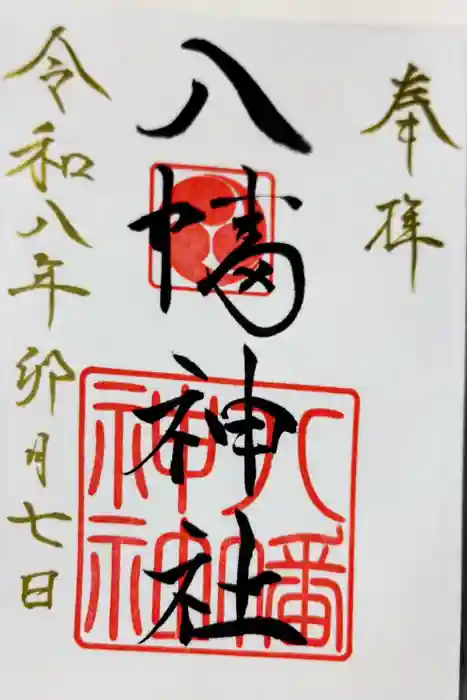 奉拝
八幡神社
令和八年卯月七日
八幡
神社